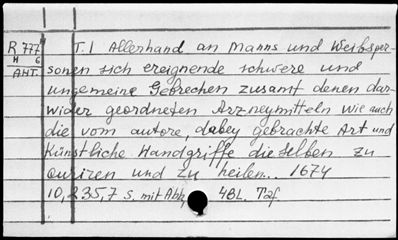 R 777 T.1 Allerhand an Manns und Weibsper-
H 6
ANT. sonen sich ereignende schwere und
ungemeine Gebrechen zusamt denen dar-
wider geordneten Arzneymitteln wie auch
die vom autore, dabey gebrachte Art und
Künstliche Handgriffe dieselben zu
curiren und zu heilen.. 1674
10, 235, 7 S. mit Abb, 4 Bl. Taf